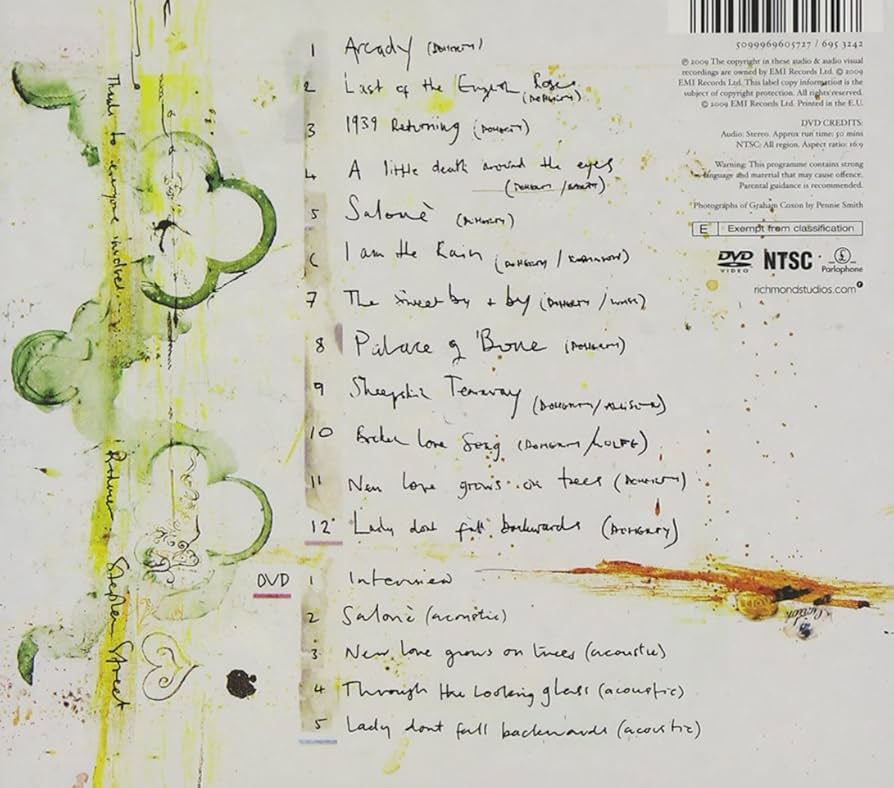 1 Arcady (DOHERTY)
2 Last of the English Roses
(DOHERTY)
3 1939 Returning (DOHERTY)
4 A little death around the eyes
(DOHERTY / BARÂT)
5 Salomè (DOHERTY)
6 I am the Rain (DOHERTY / ROBINSON)
7 The Sweet by + by (DOHERTY / WHITE)
8 Palace of Bone (DOHERTY)
9 Sheepskin Tearaway (DOHERTY/ALLISON)
10 Broken Love Song (DOHERTY/WOLFE)
11 New love grows on trees (DOHERTY)
12 Lady dont fall backwards (DOHERTY)
DVD 1 Interview
2 Salomè (acoustic)
3 New love grows on trees (acoustic)
4 Through the Looking glass (acoustic)
5 Lady dont fall backwards (acoustic)
Thanks to everyone involved.
Producer: Stephen Street
5099969605727 / 695 3242
℗ 2009 The copyright in these audio & audio visual
recordings are owned by EMI Records Ltd. © 2009
EMI Records Ltd. This label copy information is the
subject of copyright protection. All rights reserved.
© 2009 EMI Records Ltd. Printed in the E.U.
DVD CREDITS:
Audio: Stereo. Approx run time: 50 mins
NTSC: All region. Aspect ratio: 16:9
Warning: This programme contains strong
language and material that may cause offence.
Parental guidance is recommended.
Photographs of Graham Coxon by Pennie Smith
E Exempt from classification
DVD VIDEO NTSC Parlophone
richmondstudios.com